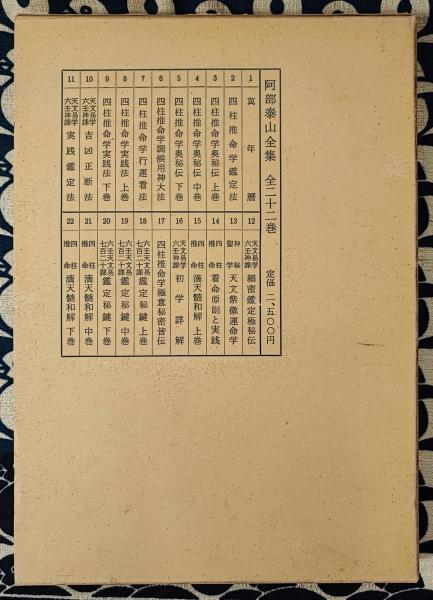 阿部泰山全集 全二十二巻 定価 二、五〇〇円
1 萬年暦
2 四柱推命学鑑定法
3 四柱推命学奥秘伝 上巻
4 四柱推命学奥秘伝 中巻
5 四柱推命学奥秘伝 下巻
6 四柱推命学調候用神大法
7 四柱推命学行運看法
8 四柱推命学実践法 上巻
9 四柱推命学実践法 下巻
10 天文易学六壬神課 吉凶正断法
11 天文易学六壬神課 実践鑑定法
12 天文易学六壬神課 細密鑑定極秘伝
13 神秘聖学 天文紫微運命学
14 四柱推命 看命原則と実践
15 四柱推命 滴天髄和解 上巻
16 天文易学六壬神課 初学詳解
17 四柱推命学極意秘密皆伝
18 六壬天文易学七百二十課 鑑定秘鍵 上巻
19 六壬天文易学七百二十課 鑑定秘鍵 中巻
20 六壬天文易学七百二十課 鑑定秘鍵 下巻
21 四柱推命 滴天髄和解 中巻
22 四柱推命 滴天髄和解 下巻